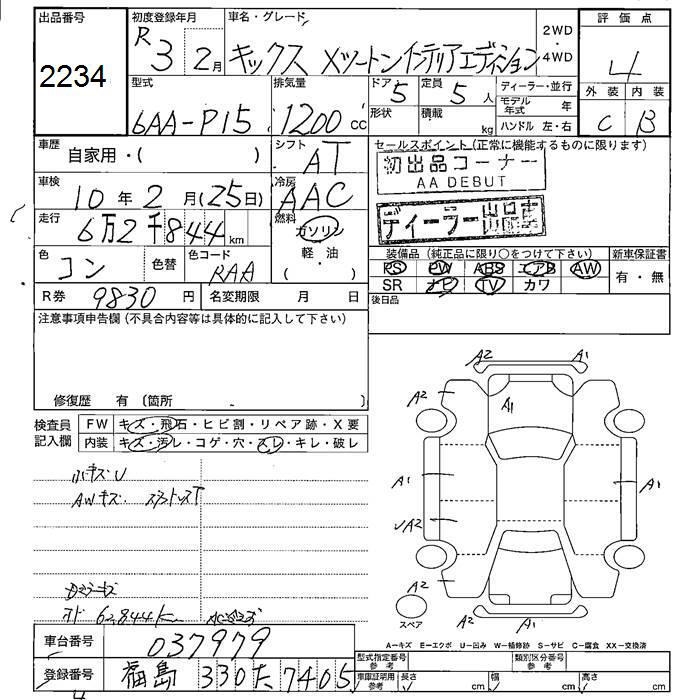 出品番号 初度登録年月 車名・グレード 評価点
2234 R3 2月 キックス Xツートンインテリアエディション 2WD・4WD 4
型式 排気量 ドア 定員 ディーラー・並行 外装 内装
6AA-P15 1200cc 5 5人 モデル年式 年 C B
形状 積載 kg ハンドル 左・右
車歴 シフト セールスポイント(正常に機能するものに限ります)
自家用・( ) AT 初出品コーナー
AA DEBUT
車検 冷房
10年2月(25日) AAC ディーラー出品車
走行 燃料
6万2千844km ガソリン
軽・油
( )
色 色替 色コード 装備品(純正品に限り○をつけて下さい) 新車保証書
コン RAA PS PW ABS エアB AW 有・無
SR ナビ TV カワ
R券 9830円 名変期限 月 日 後日品
注意事項申告欄(不具合内容等は具体的に記入して下さい)
修復歴 有(箇所 )
検査員記入欄 FW キズ・飛石・ヒビ割・リペア跡・X要
内装 キズ・汚レ・コゲ・穴・スレ・キレ・破レ
AWキズ
62,844k
A2 A1
A2 A1
A1 A1
A2
A2
A2 A1
スペア
A-キズ E-エクボ U-凹み W-補修跡 S-サビ C-腐食 XX-交換済
車台番号 037979
型式指定番号 参考 類別区分番号 参考
登録番号 福島 330 た 7405
車庫証明用 参考 長さ cm 幅 cm 高さ cm